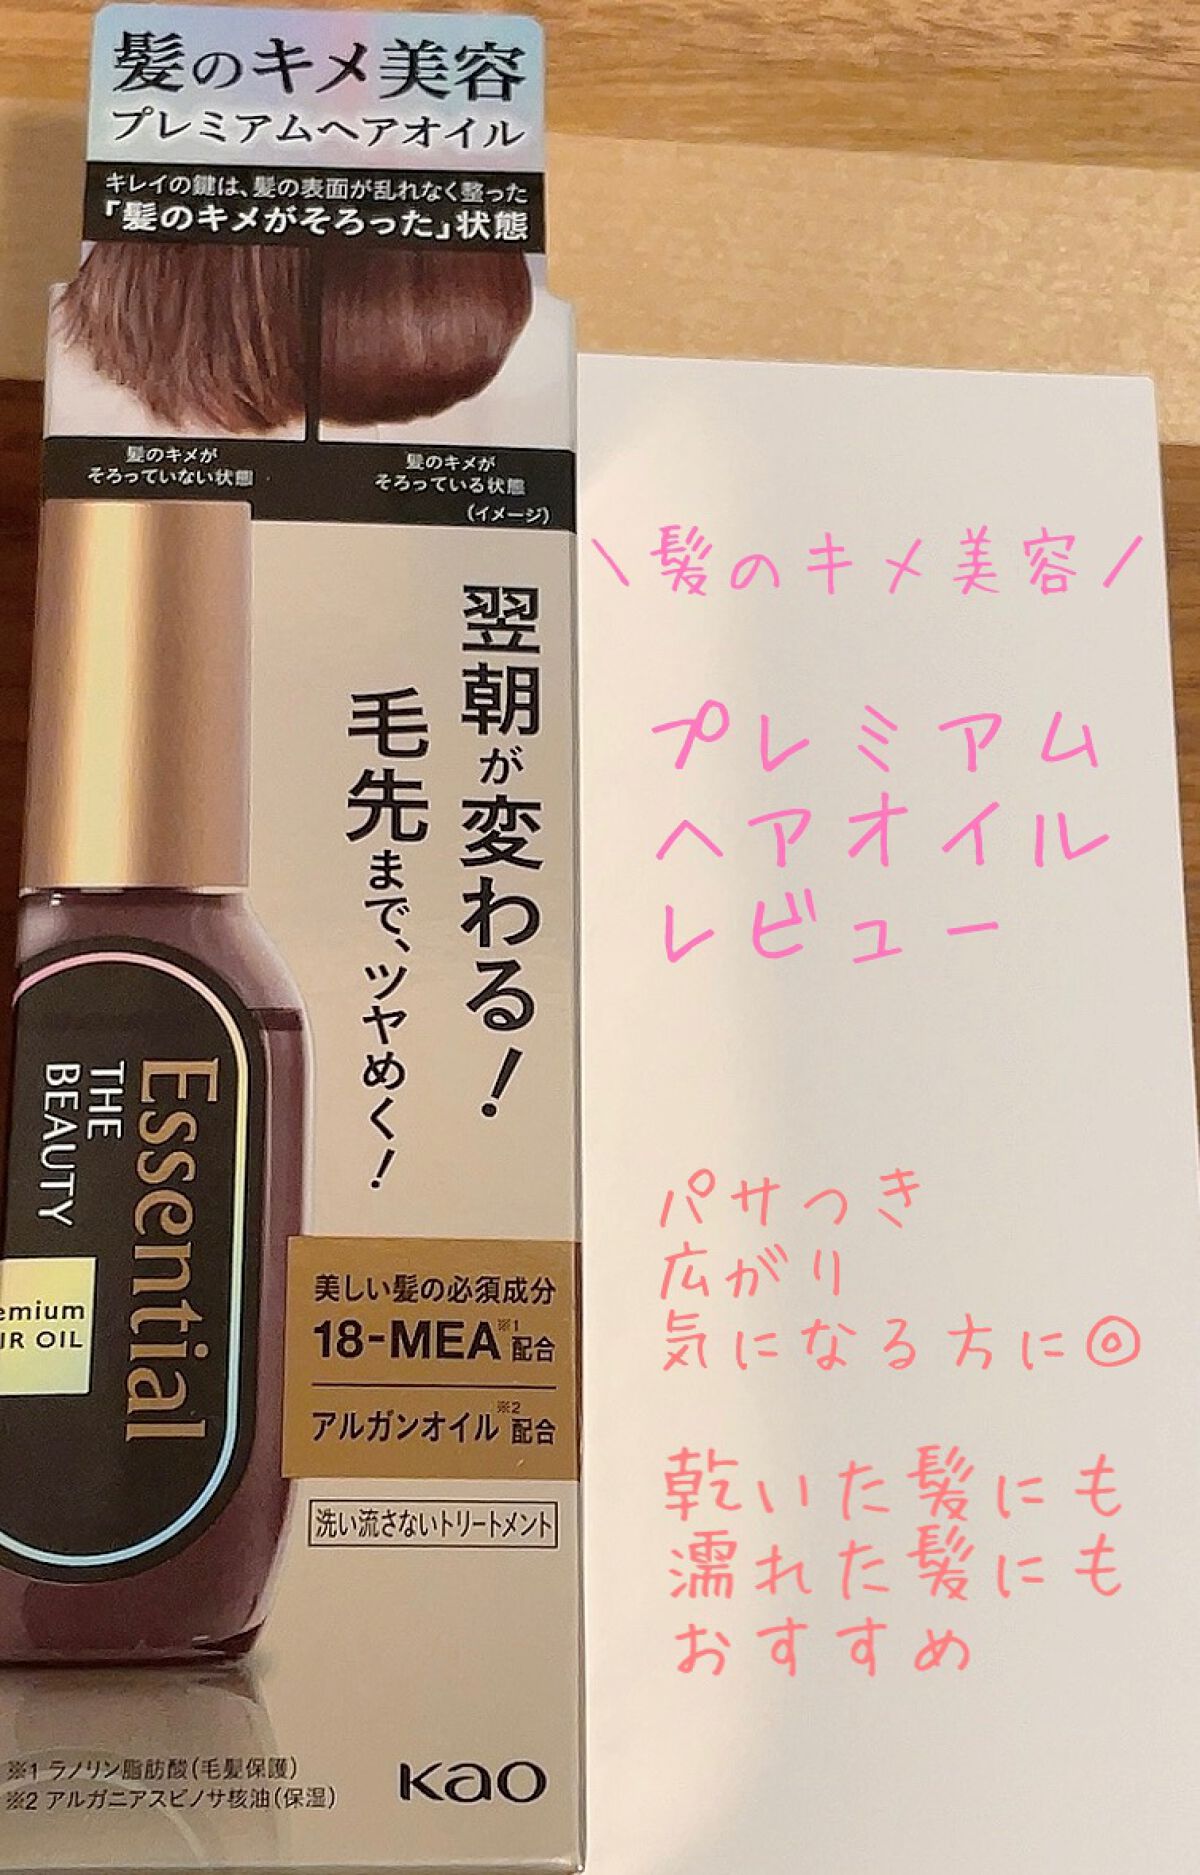 髪のキメ美容
プレミアムヘアオイル
キレイの鍵は、髪の表面が乱れなく整った
「髪のキメがそろった」状態
髪のキメが
そろっていない状態
髪のキメが
そろっている状態
(イメージ)
翌朝が変わる!
毛先まで、ツヤめく!
Essential
THE
BEAUTY
emium
IR OIL
美しい髪の必須成分
18-MEA※1配合
アルガンオイル※2配合
洗い流さないトリートメント
※1 ラノリン脂肪酸(毛髪保護)
※2 アルガニアスピノサ核油(保湿)
Kao
\髪のキメ美容/
プレミアム
ヘアオイル
レビュー
パサつき
広がり
気になる方に◎
乾いた髪にも
濡れた髪にも
おすすめ